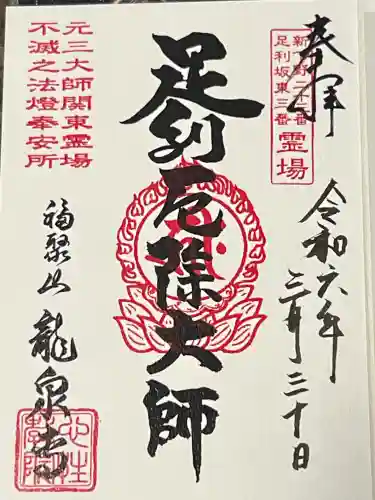 奉拝
新下野三十二番
足利坂東三番
霊場
令和六年
三月三十日
足利厄除大師
元三大師関東霊場
不滅之法燈奉安所
福聚山
龍泉寺